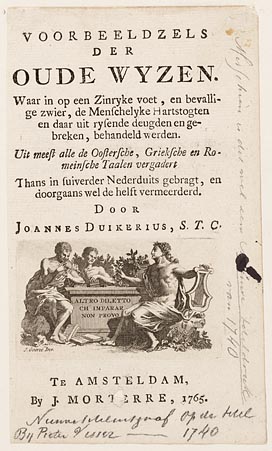 VOORBEELDZELS
DER
OUDE WYZEN.
Waar in op een Zinryke voet, en bevalli-
ge zwier, de Menschelyke Hartstogten
en daar uit rysende deugden en ge-
breken, behandeld werden.
Uit meest alle de Oostersche, Grieksche en Ro-
meinsche Taalen vergadert
Thans in suiverder Nederduits gebragt, en
doorgaans wel de helft vermeerderd.
DOOR
JOANNES DUIKERIUS, S. T. C.
ALTRO DILETTO
CH IMPARAR
NON PROVO
TE AMSTELDAM,
By J. MORTERRE, 1765.
op de titel
By Pieter Visser — 1740
van 1740